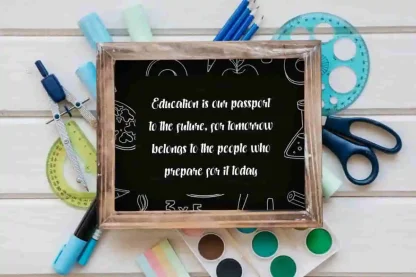 Education is our passport
to the future, for tomorrow
belongs to the people who
prepare for it today
3×5